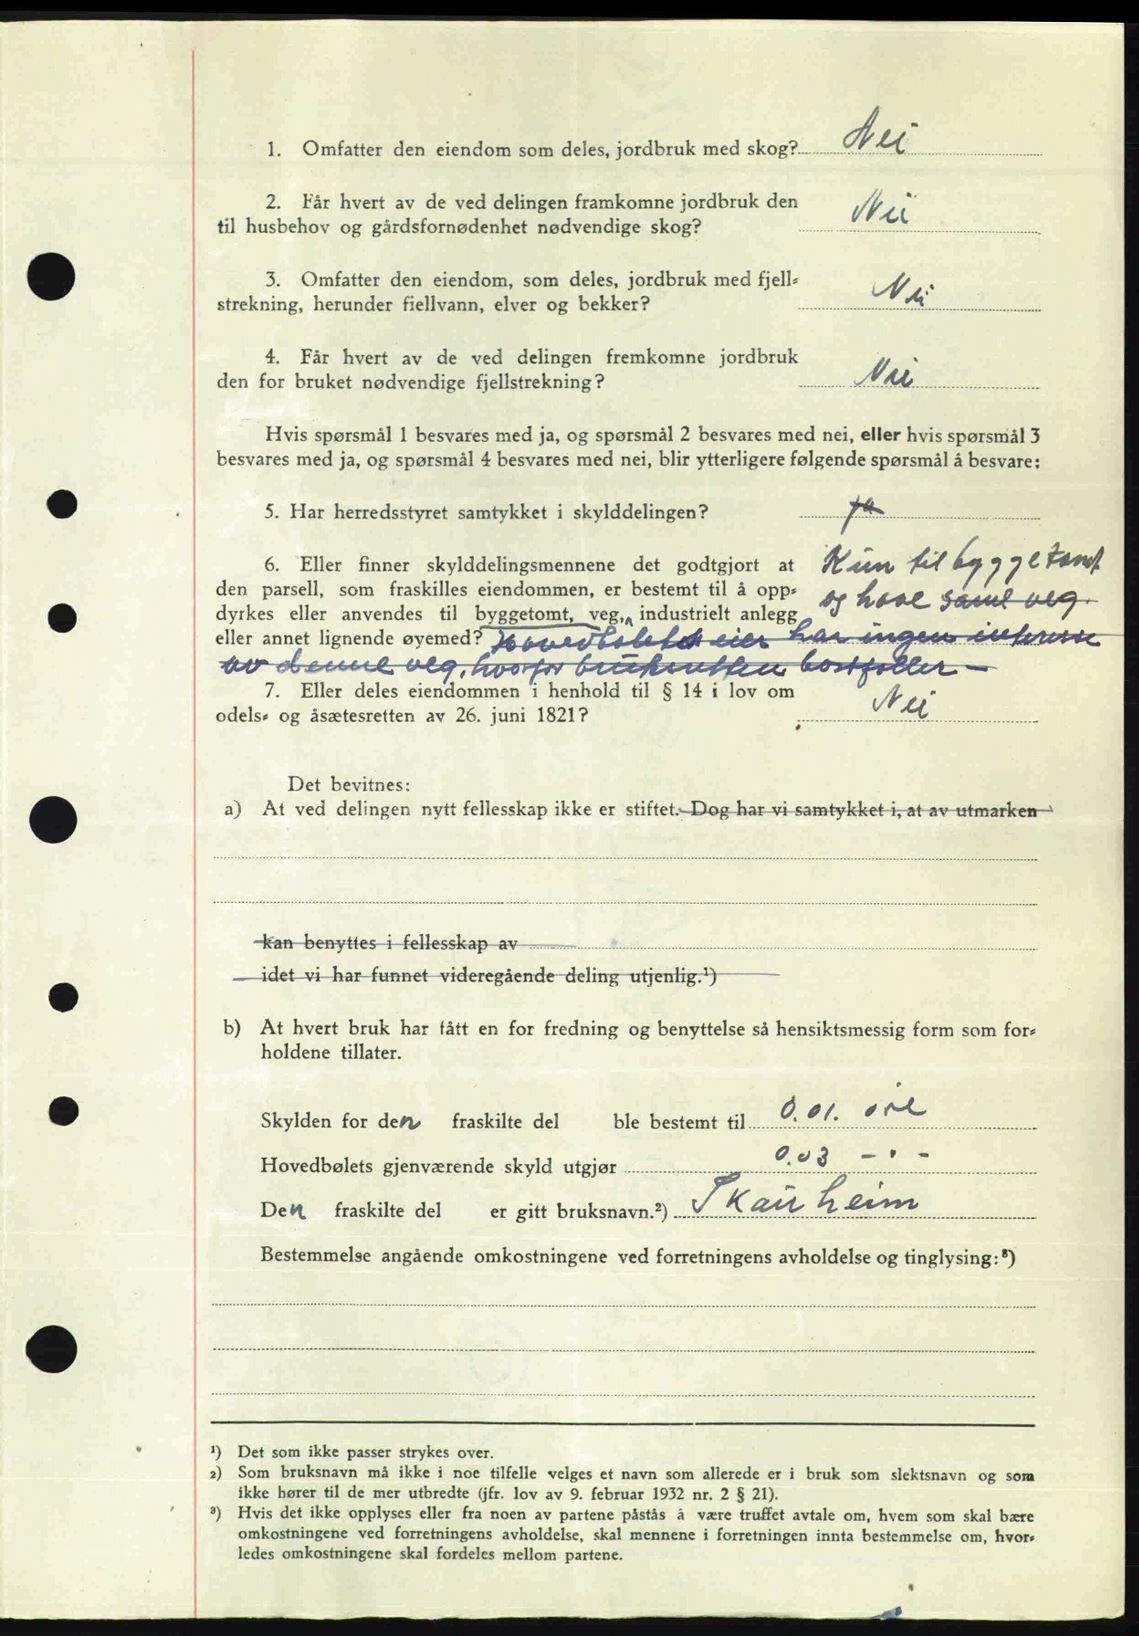 1. Omfatter den eiendom som deles, jordbruk med skog? Nei
2. Får hvert av de ved delingen framkomne jordbruk den
til husbehov og gårdsfornødenhet nødvendige skog? Nei
3. Omfatter den eiendom, som deles, jordbruk med fjell-
strekning, herunder fiellvann, elver og bekker? Nei
4. Får hvert av de ved delingen fremkomne jordbruk
den for bruket nødvendige fjellstrekning? Nei
Hvis spørsmål 1 besvares med ja, og spørsmål 2 besvares med nei, eller hvis spørsmål 3
besvares med ja, og spørsmål 4 besvares med nei, blir ytterligere følgende spørsmål å besvare:
5. Har herredsstyret samtykket i skylddelingen? ja
6. Eller finner skylddelingsmennene det godtgjort at Kun til byggetomt
den parsell, som fraskilles eiendommen, er bestemt til å opp-
dyrkes eller anvendes til byggetomt, veg, industrielt anlegg og have samt veg.
eller annet lignende øyemed? Hovedbølets eier har ingen interesse
av denne veg, hvorfor bruksretten bortfaller —
7. Eller deles eiendommen i henhold til § 14 i lov om
odels- og åsætesretten av 26. juni 1821? Nei
Det bevitnes:
a) At ved delingen nytt fellesskap ikke er stiftet. Dog har vi samtykket i, at av utmarken
kan benyttes i fellesskap av
idet vi har funnet videregående deling utjenlig.¹)
b) At hvert bruk har fått en for fredning og benyttelse så hensiktsmessig form som for-
holdene tillater.
Skylden for den fraskilte del ble bestemt til 0.01. øre
Hovedbølets gjenværende skyld utgjør 0.03 — " —
Den fraskilte del er gitt bruksnavn.²) Skauheim
Bestemmelse angående omkostningene ved forretningens avholdelse og tinglysing:³)
¹) Det som ikke passer strykes over.
²) Som bruksnavn må ikke i noe tilfelle velges et navn som allerede er i bruk som slektsnavn og som
ikke hører til de mer utbredte (jfr. lov av 9. februar 1932 nr. 2 § 21).
³) Hvis det ikke opplyses eller fra noen av partene påstås å være truffet avtale om, hvem som skal bære
omkostningene ved forretningens avholdelse, skal mennene i forretningen innta bestemmelse om, hvor-
ledes omkostningene skal fordeles mellom partene.